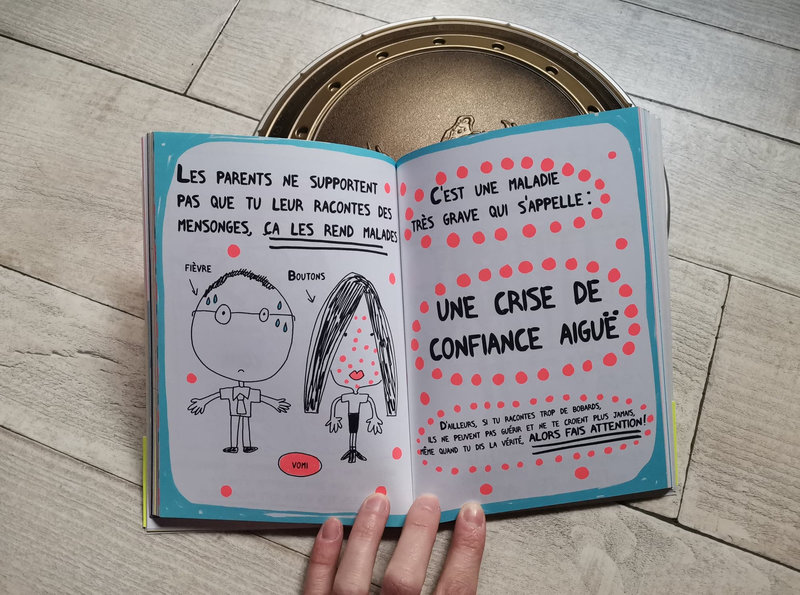 LES PARENTS NE SUPPORTENT
PAS QUE TU LEUR RACONTES DES
MENSONGES, ÇA LES REND MALADES
FIÈVRE
BOUTONS
VOMI
C'EST UNE MALADIE
TRÈS GRAVE QUI S'APPELLE :
UNE CRISE DE
CONFIANCE AIGUË
D'AILLEURS, SI TU RACONTES TROP DE BOBARDS,
ILS NE PEUVENT PAS GUÉRIR ET NE TE CROIENT PLUS JAMAIS,
MÊME QUAND TU DIS LA VÉRITÉ, ALORS FAIS ATTENTION!